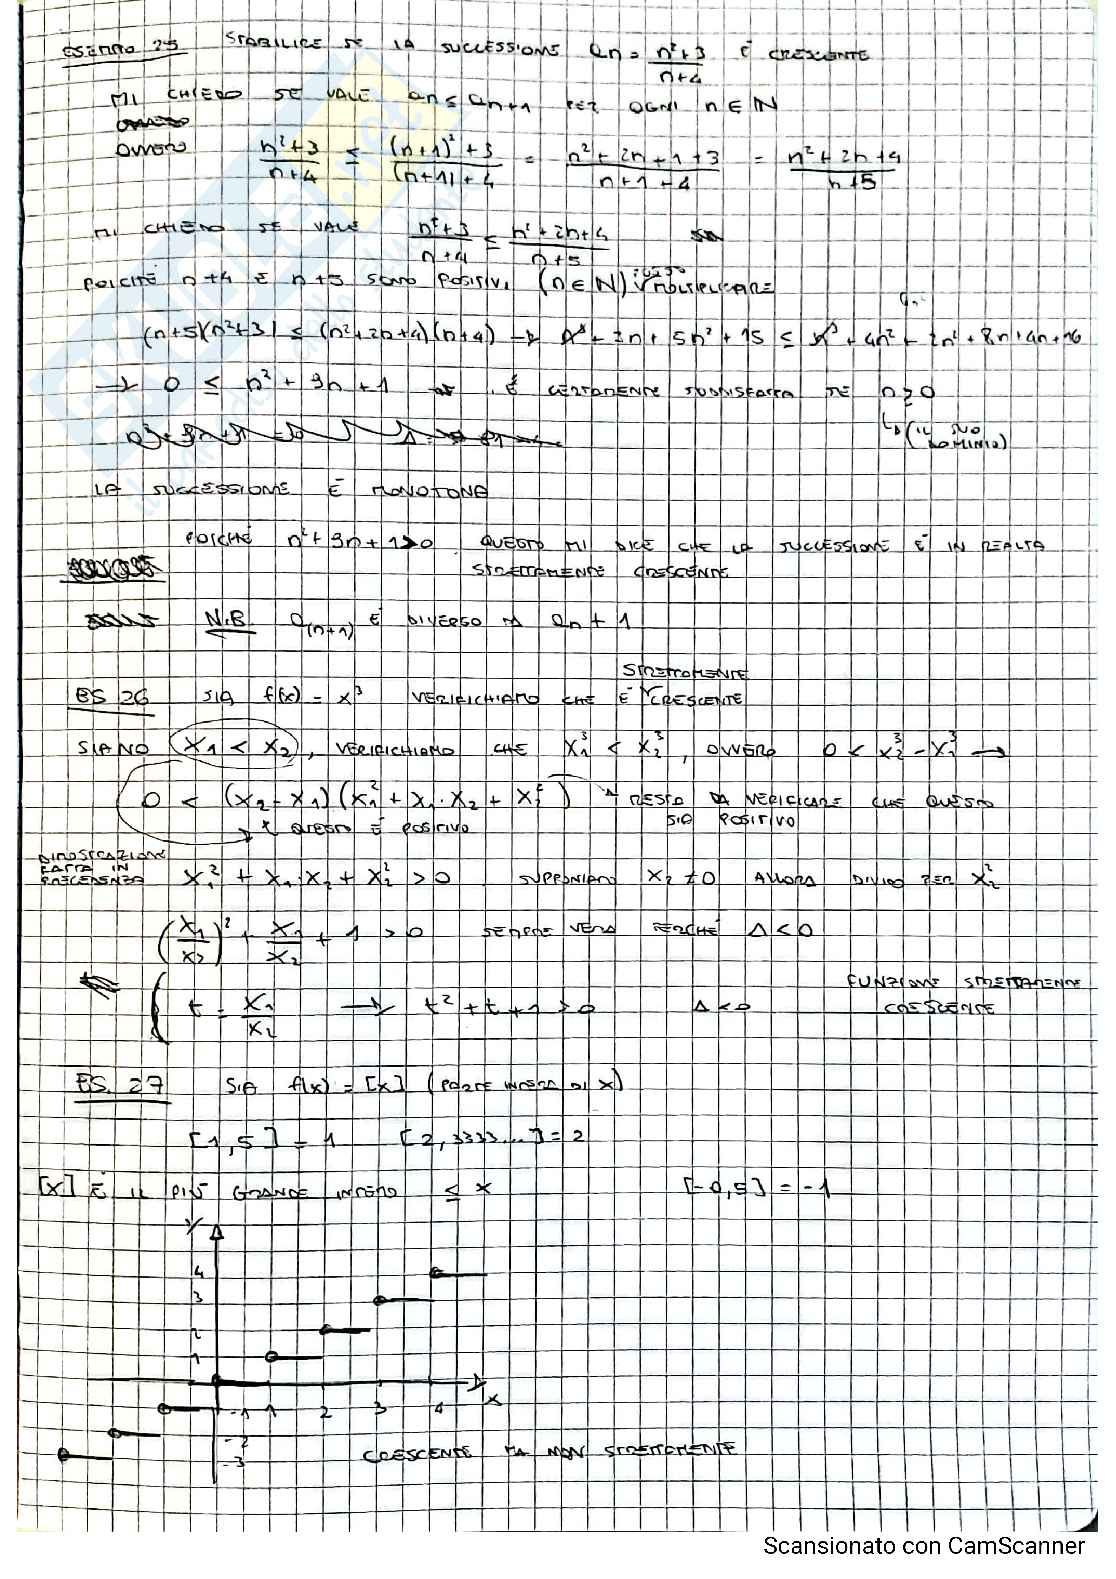 ESEMPIO 25 STABILIRE SE LA SUCCESSIONE an = (n²+3)/(n+4) È CRESCENTE
MI CHIEDO SE VALE an ≤ an+1 PER OGNI n ∈ N
OVVERO (n²+3)/(n+4) ≤ ((n+1)²+3)/((n+1)+4) = (n²+2n+1+3)/(n+1+4) = (n²+2n+4)/(n+5)
MI CHIEDO SE VALE (n²+3)/(n+4) ≤ (n²+2n+4)/(n+5)
POICHÉ n+4 E n+5 SONO POSITIVI (n ∈ N) MOLTIPLICARE
(n+5)(n²+3) ≤ (n²+2n+4)(n+4) → n³ + 3n + 5n² + 15 ≤ n³ + 4n² + 2n² + 8n + 4n + 16
→ 0 ≤ n² + 9n + 1 È CERTAMENTE SODDISFATTA SE n ≥ 0
↳ (IL SUO DOMINIO)
LA SUCCESSIONE È MONOTONA
POICHÉ n² + 9n + 1 > 0 QUESTO MI DICE CHE LA SUCCESSIONE È IN REALTA
STRETTAMENTE CRESCENTE
N.B. a(n+1) È DIVERSO DA an + 1
STRETTAMENTE
ES 26 SIA f(x) = x³ VERIFICHIAMO CHE È CRESCENTE
SIANO x1 < x2, VERIFICHIAMO CHE x1³ < x2³, OVVERO 0 < x2³ - x1³ →
0 < (x2 - x1)(x1² + x1·x2 + x2²) → RESTO DA VERIFICARE CHE QUESTO
SIA POSITIVO
QUESTO È POSITIVO
DIMOSTRAZIONE
FATTA IN
PRECEDENZA
x1² + x1·x2 + x2² > 0 SUPPONIAMO x2 ≠ 0 ALLORA DIVIDO PER x2²
(x1/x2)² + x1/x2 + 1 > 0 SEMPRE VERO PERCHÉ Δ < 0
t = x1/x2 → t² + t + 1 > 0 Δ < 0
FUNZIONE STRETTAMENTE
CRESCENTE
ES. 27 SIA f(x) = [x] (PARTE INTERA DI x)
[1,5] = 1 [2,3333...] = 2
[x] È IL PIÙ GRANDE INTERO ≤ x [-0,5] = -1
y
4
3
2
1
-1 1 2 3 4 x
-2
-3
CRESCENTE MA NON STRETTAMENTE
Scansionato con CamScanner